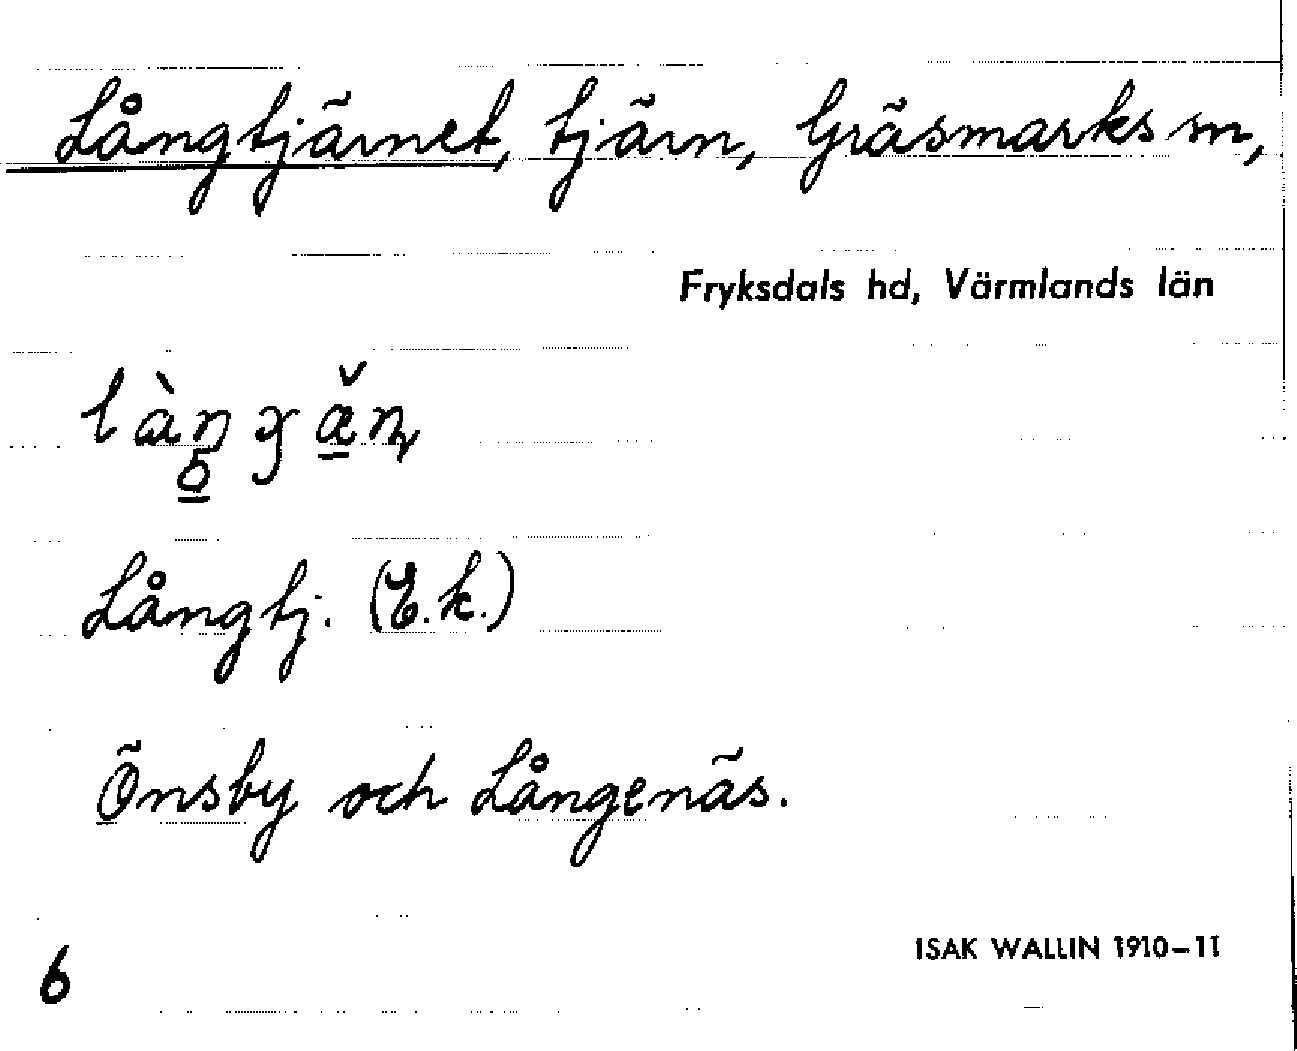 Långtjärnet, tjärn, Gräsmarks sn,
Fryksdals hd, Värmlands län
Långtj. (E.k.)
Önsby och Långenäs.
6
ISAK WALLIN 1910–11